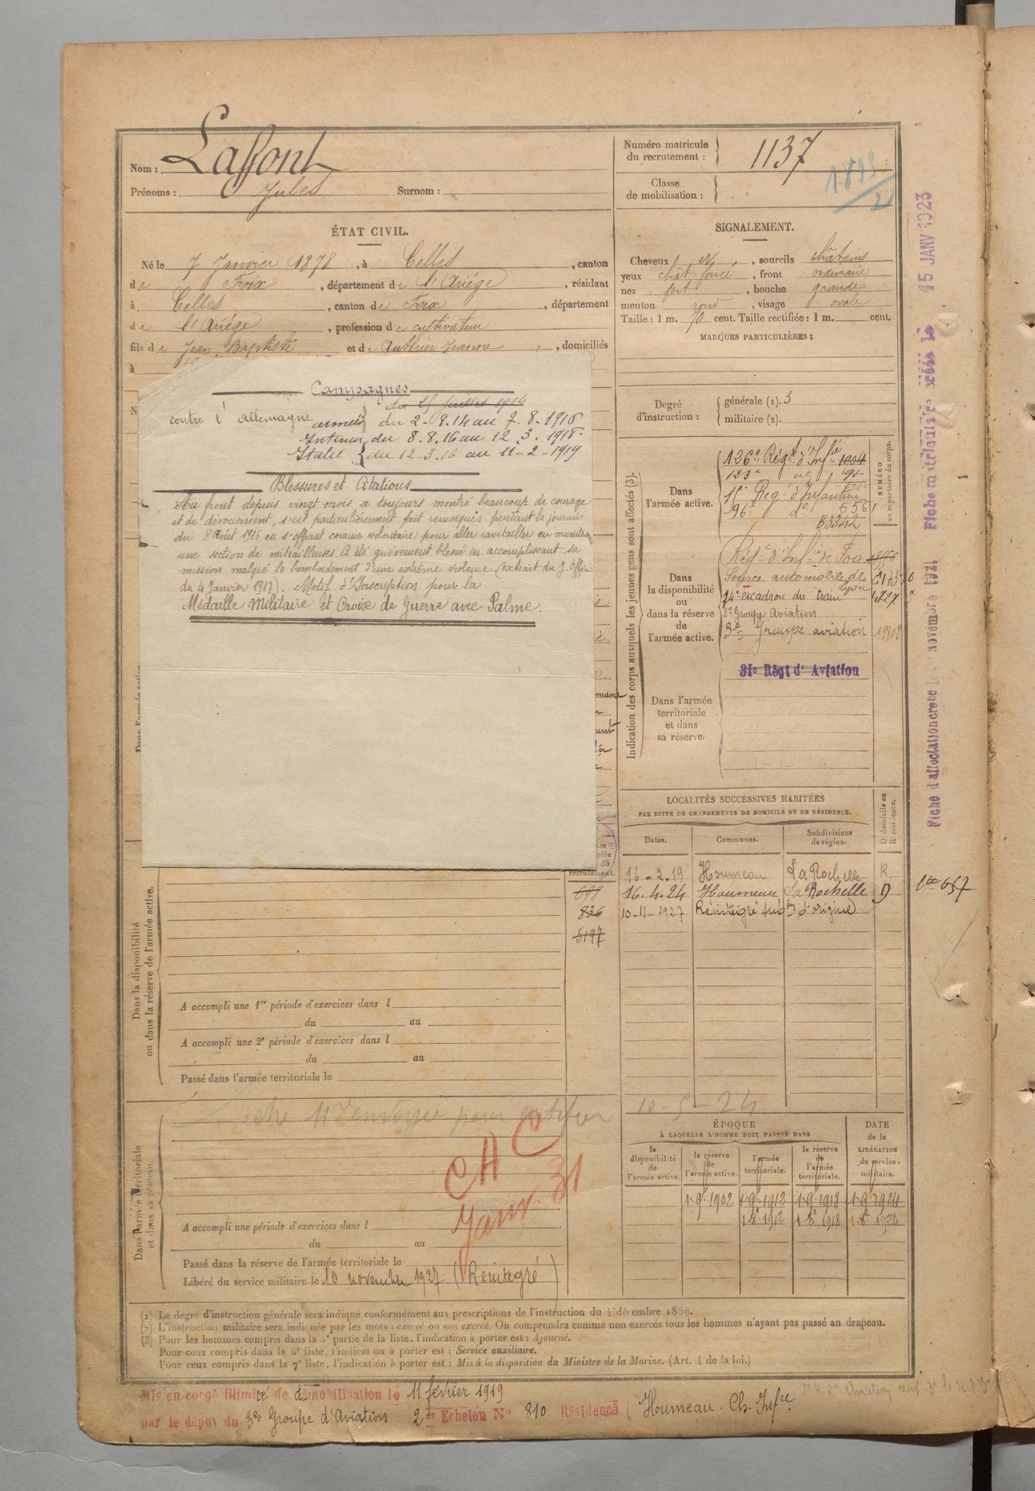 Nom : Lafont
Prénoms : Jules Surnom :
Numéro matricule du recrutement : 1137
Classe de mobilisation :
ÉTAT CIVIL.
Né le 7 Janvier 1878, à Celles, canton
de Foix, département de l'Ariége, résidant
à Celles, canton de Foix, département
de l'Ariége, profession de cultivateur
fils de Jean Baptiste et de Authier Jeanne, domiciliés
à
SIGNALEMENT.
Cheveux, sourcils châtains
yeux chât. foncé, front ordinaire
nez fort, bouche grande
menton rond, visage ovale
Taille : 1 m. 70 cent. Taille rectifiée : 1 m. cent.
MARQUES PARTICULIÈRES :
Campagnes
contre l'allemagne
armées du 2-8.14 au 7-8-1916
Intérieur du 8.8.16 au 12.3.1918
Italie du 12-3.18 au 11-2-1919
Blessures et Citations
Au front depuis vingt mois a toujours montré beaucoup de courage
et de dévouement, s'est particulièrement fait remarquer pendant la journée
du 8 Aout 1916 en s'offrant comme volontaire pour aller ravitailler en munitions
une section de mitrailleuses. A été grièvement blessé en accomplissant sa
mission malgré le bombardement d'une extrême violence (extrait du J. Offi
du 4 Janvier 1917). Motif d'Inscription pour la
Médaille Militaire et Croix de Guerre avec Palme.
Degré d'instruction :
générale (1). 3
militaire (2).
Indication des corps auxquels les jeunes gens sont affectés (3).
NUMÉRO au répertoire du corps.
Dans l'armée active.
126e Régt d'Infie
123e
Reg. d'Infanterie
96e do 5561
Dans la disponibilité ou dans la réserve de l'armée active.
Régt d'Infie de Foix
Service automobile de Lyon
14e escadron du train
2e Groupe Aviation
3e Groupe aviation
31e Régt d'Aviation
Dans l'armée territoriale et dans sa réserve.
Fiche d'affectation créée le 1er novembre 1921
Fiche matriculaire créée le 15 JANV 1923
LOCALITÉS SUCCESSIVES HABITÉES
PAR SUITE DE CHANGEMENTS DE DOMICILE OU DE RÉSIDENCE.
D domicile ou R résidence.
Dates. Communes. Subdivisions de région.
16-3-19 Houmeau La Rochelle R
16-4-24 Houmeau La Rochelle D
10-11-1927 Réintégré subd. d'origine
recrutement.
836
5197
Dans la disponibilité ou dans la réserve de l'armée active.
A accompli une 1re période d'exercices dans l
du au
A accompli une 2e période d'exercices dans l
du au
Passé dans l'armée territoriale le
10-5-24
CAC
Janv. 31
Dans l'armée territoriale et dans sa réserve.
A accompli une période d'exercices dans l
du au
Passé dans la réserve de l'armée territoriale le
Libéré du service militaire le 10 novembre 1927 (Réintégré)
ÉPOQUE
À LAQUELLE L'HOMME DOIT PASSER DANS
DATE de la LIBÉRATION du service militaire.
la disponibilité de l'armée active. la réserve de l'armée active. l'armée territoriale. la réserve de l'armée territoriale.
1-9-1902 1-9-1912 1-9-1918 1-9-1924
1912 1918 1924
(1) Le degré d'instruction générale sera indiqué conformément aux prescriptions de l'instruction du 4 décembre 1889.
(2) L'instruction militaire sera indiquée par les mots : exercé ou non exercé. On comprendra comme non exercés tous les hommes n'ayant pas passé au drapeau.
(3) Pour les hommes compris dans la 5e partie de la liste, l'indication à porter est : Ajourné.
Pour ceux compris dans la 6e liste, l'indication à porter est : Service auxiliaire.
Pour ceux compris dans la 7e liste, l'indication à porter est : Mis à la disposition du Ministre de la Marine. (Art. 4 de la loi.)
Mis en congé illimité de démobilisation le 11 février 1919
par le dépôt du 3e Groupe d'Aviation 2e Echelon No 810 Résidence Houmeau. Ch. Infre.